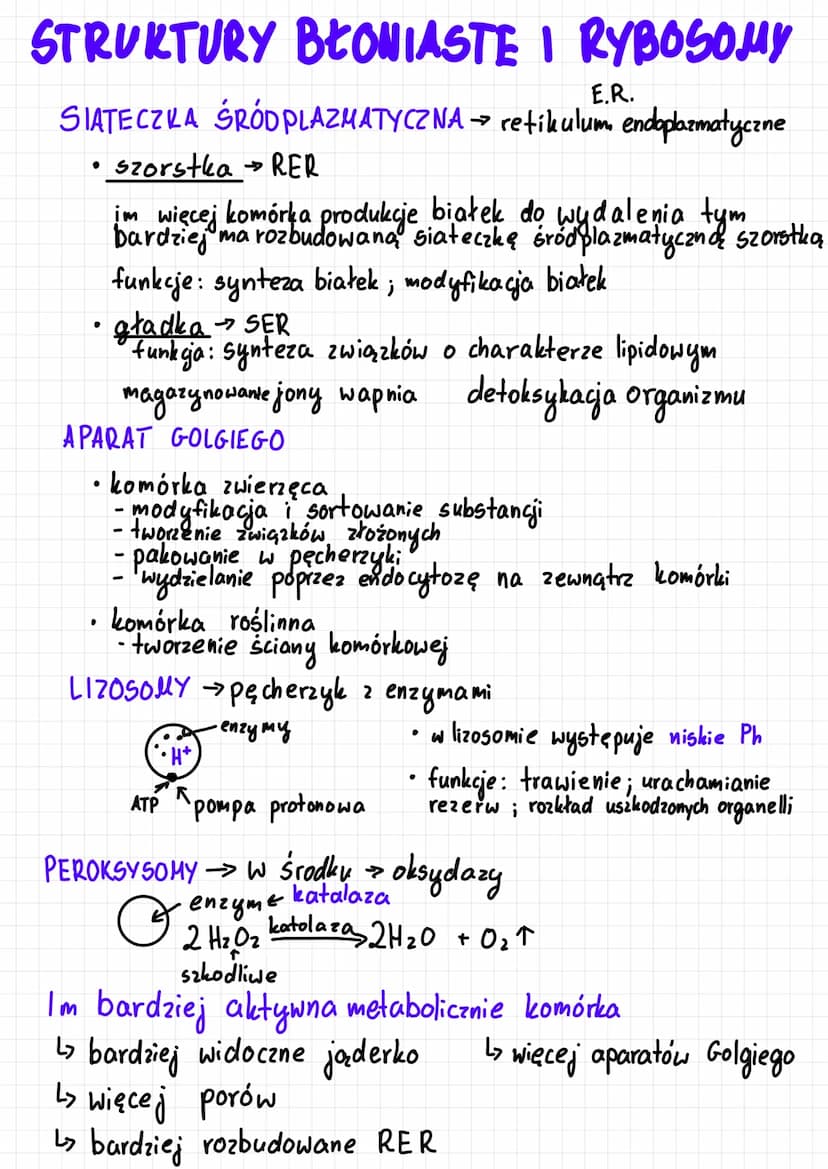 STRUKTURY BŁONIASTE I RYBOSOMY
E.R.
SIATECZKA ŚRÓDPLAZMATYCZNA → retikulum endoplazmatyczne
• szorstka → RER
im więcej komórka produkcje białek do wydalenia tym
bardziej ma rozbudowaną siateczkę śródplazmatyczną szorstką
funkcje: synteza białek ; modyfikacja białek
• gładka → SER
funkcja: synteza związków o charakterze lipidowym
magazynowanie jony wapnia detoksykacja organizmu
APARAT GOLGIEGO
• komórka zwierzęca
- modyfikacja i sortowanie substancji
- tworzenie związków złożonych
- pakowanie w pęcherzyki
- wydzielanie poprzez endocytozę na zewnątrz komórki
• komórka roślinna
- tworzenie ściany komórkowej
LIZOSOMY → pęcherzyk z enzymami
enzymy
H+
ATP pompa protonowa
• w lizosomie występuje niskie Ph
• funkcje: trawienie ; urachamianie
rezerw ; rozkład uszkodzonych organelli
PEROKSYSOMY → w środku → oksydazy
enzym ← katalaza
2 H₂O₂ katalaza → 2H₂O + O₂↑
↑
szkodliwe
Im bardziej aktywna metabolicznie komórka
↳ bardziej widoczne jąderko ↳ więcej aparatów Golgiego
↳ więcej porów
↳ bardziej rozbudowane RER